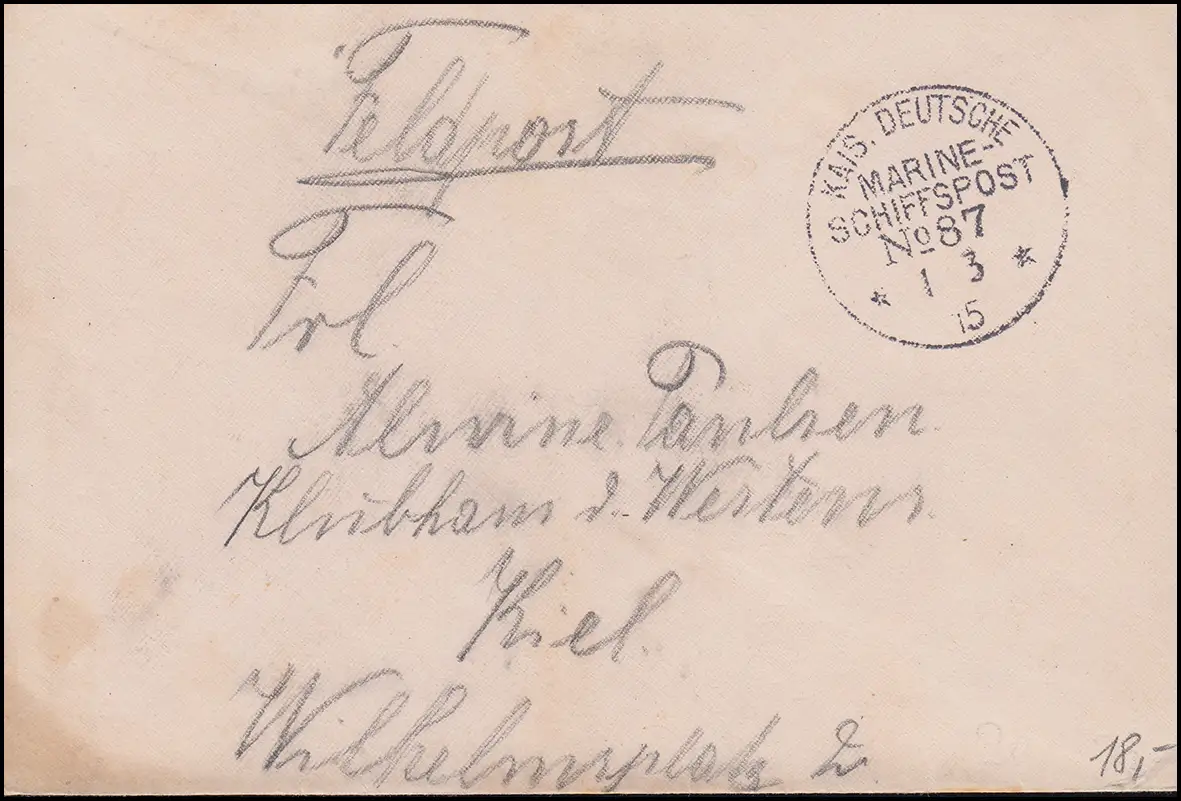 Feldpost
KAIS. DEUTSCHE
MARINE-
SCHIFFSPOST
No 87
* 1 3 *
15
Frl.
Alwine
d. Westens.
Kiel.
Wilhelmsplatz 2.
18,-